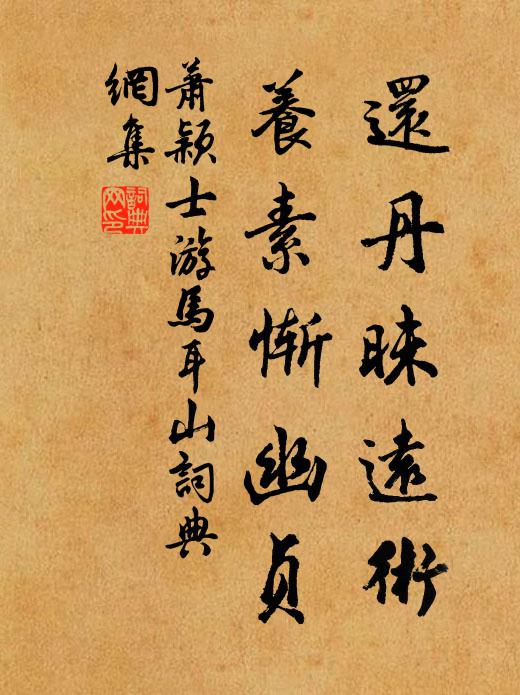 還丹昧遠術
養素慚幽貞
蕭穎士游馬耳山詞典
網集
詞典
网印